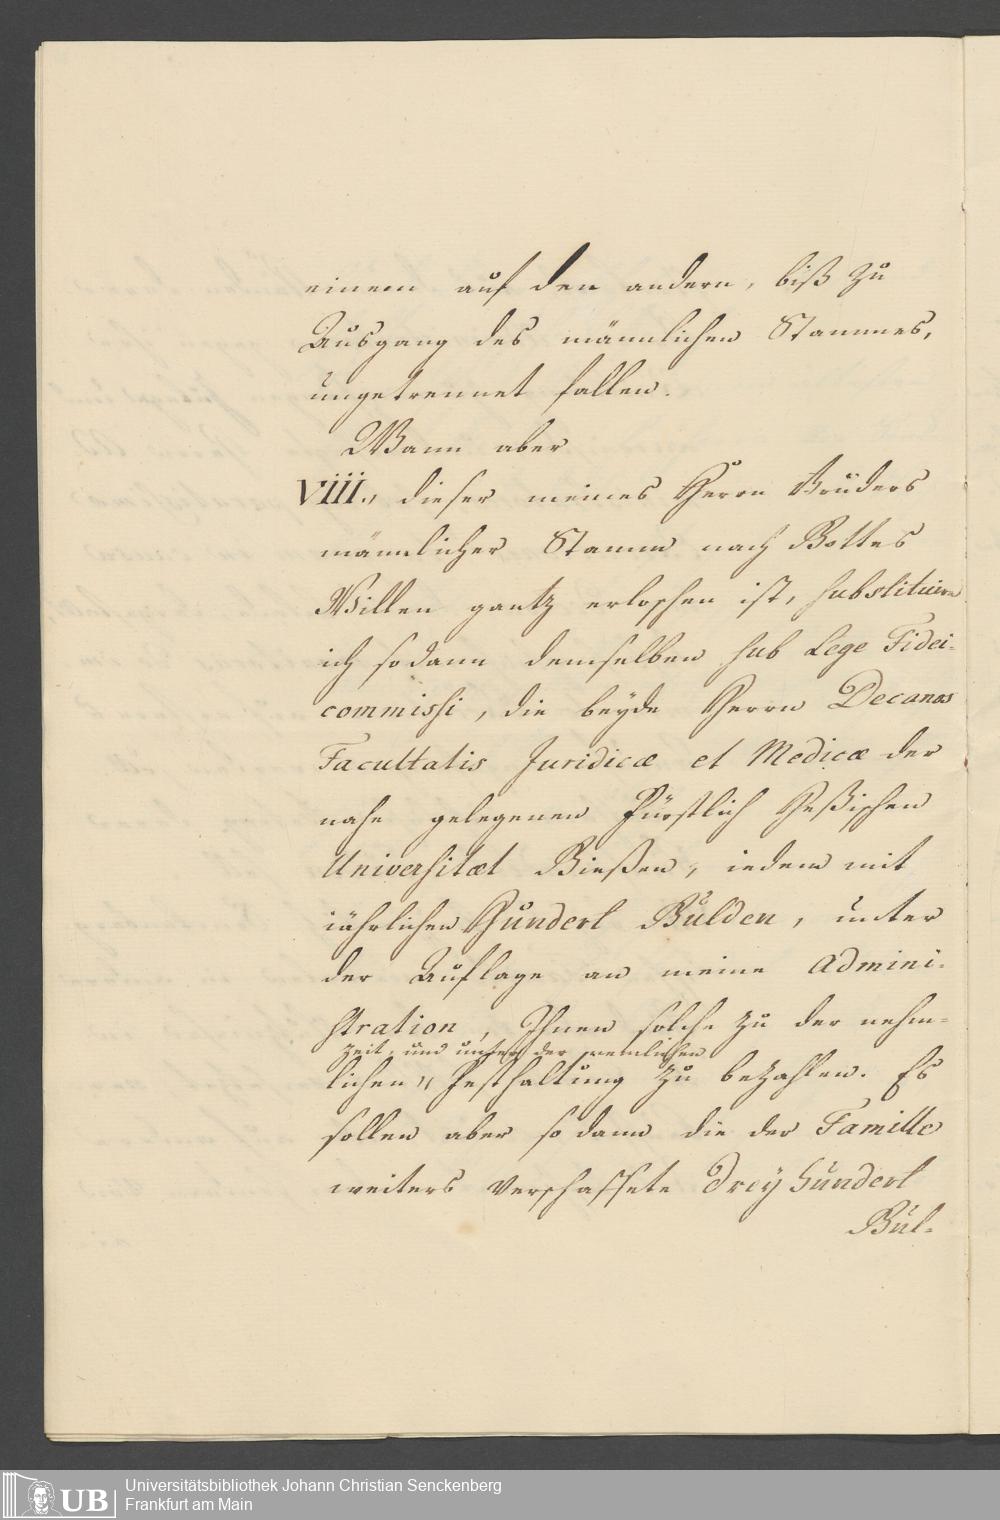 einem auf den andern, biß zu
Ausgang des männlichen Stammes,
ungetrennet fallen.
Wann aber
VIII., dieser meines Herrn Bruders
männlicher Stamm nach Gottes
Willen gantz erloschen ist, substituire
ich sodann demselben sub Lege Fidei-
commissi, die beyde Herrn Decanos
Facultatis Juridicæ et Medicæ der
nahe gelegenen Fürstlich Heßischen
Universitæt Gießen, iedem mit
iährlichen Hundert Gulden, unter
der Auflage an meine Admini-
stration, Ihnen solche zu der nehm-
Zeit, und unter der nemlichen
lichen Festhaltung zu bezahlen. Es
sollen aber sodann die der Famille
weiters verschaffete Drey hundert
Gul-
Universitätsbibliothek Johann Christian Senckenberg
Frankfurt am Main
UB